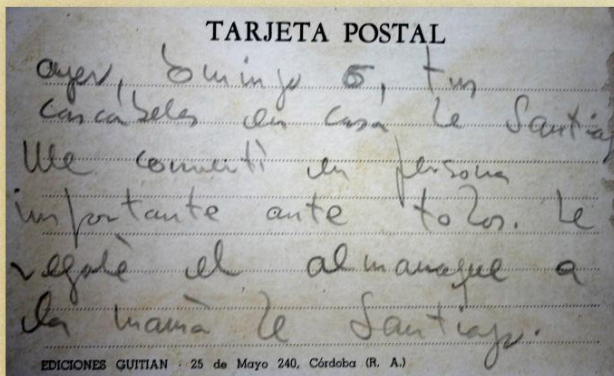 TARJETA POSTAL
ayer, domingo 6, tus
cascabeles en casa de Santiag
Me convertí en persona
importante ante todos. Le
regalè el almanaque a
la mamà de Santiago.
EDICIONES GUITIAN - 25 de Mayo 240, Córdoba (R. A.)